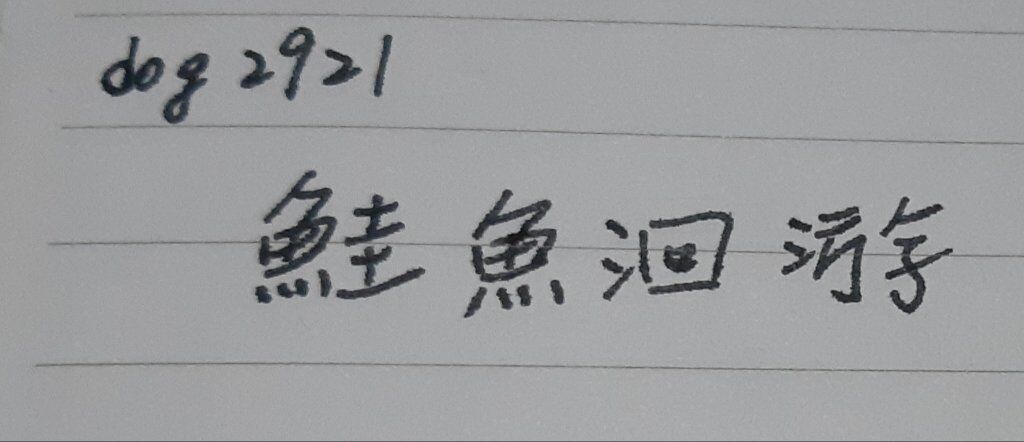 dog 2921
鮭魚洄游